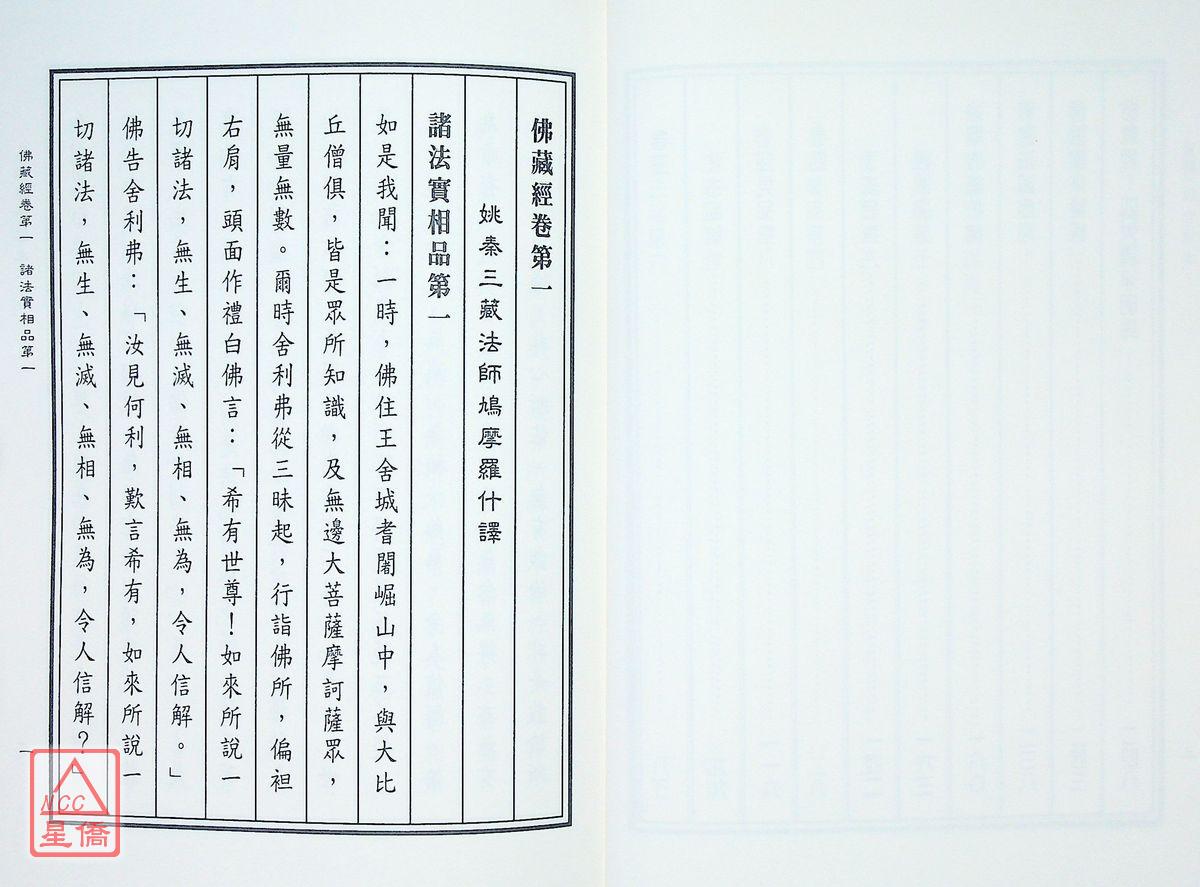 佛藏經卷第一
姚秦三藏法師鳩摩羅什譯
諸法實相品第一
如是我聞：一時，佛住王舍城耆闍崛山中，與大比
丘僧俱，皆是眾所知識，及無邊大菩薩摩訶薩眾，
無量無數。爾時舍利弗從三昧起，行詣佛所，偏袒
右肩，頭面作禮白佛言：「希有世尊！如來所說一
切諸法，無生、無滅、無相、無為，令人信解。」
佛告舍利弗：「汝見何利，歎言希有，如來所說一
切諸法，無生、無滅、無相、無為，令人信解？」
佛藏經卷第一　諸法實相品第一
一
NCC
星僑